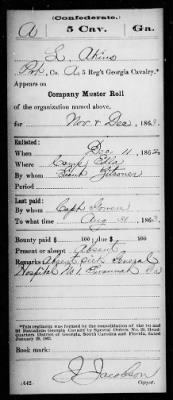 (Confederate.)
A 5 Cav. Ga.
L. Akins
Co. A, 5 Reg't Georgia Cavalry.*
Appears on
Company Muster Roll
of the organization named above,
for Nov & Dec, 1863.
Enlisted:
When Dec 11, 1862
Where Camp
By whom Lieut
Period
Last paid:
By whom Capt
To what time Aug 31, 1863.
Bounty paid $ 100; due $ 100
Present or absent Absent
Remarks: Absent sick General
Hospital No 1 Savannah Ga
*This regiment was formed by the consolidation of the 1st and
2d Battalions Georgia Cavalry by Special Orders No. 20, Head-
quarters District of Georgia, South Carolina and Florida, dated
January 20, 1863.
Book mark:
J. Jacobson
(642) Copyist.